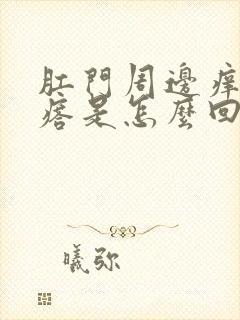 肛門周邊癢
痞是怎麼回
曦弥